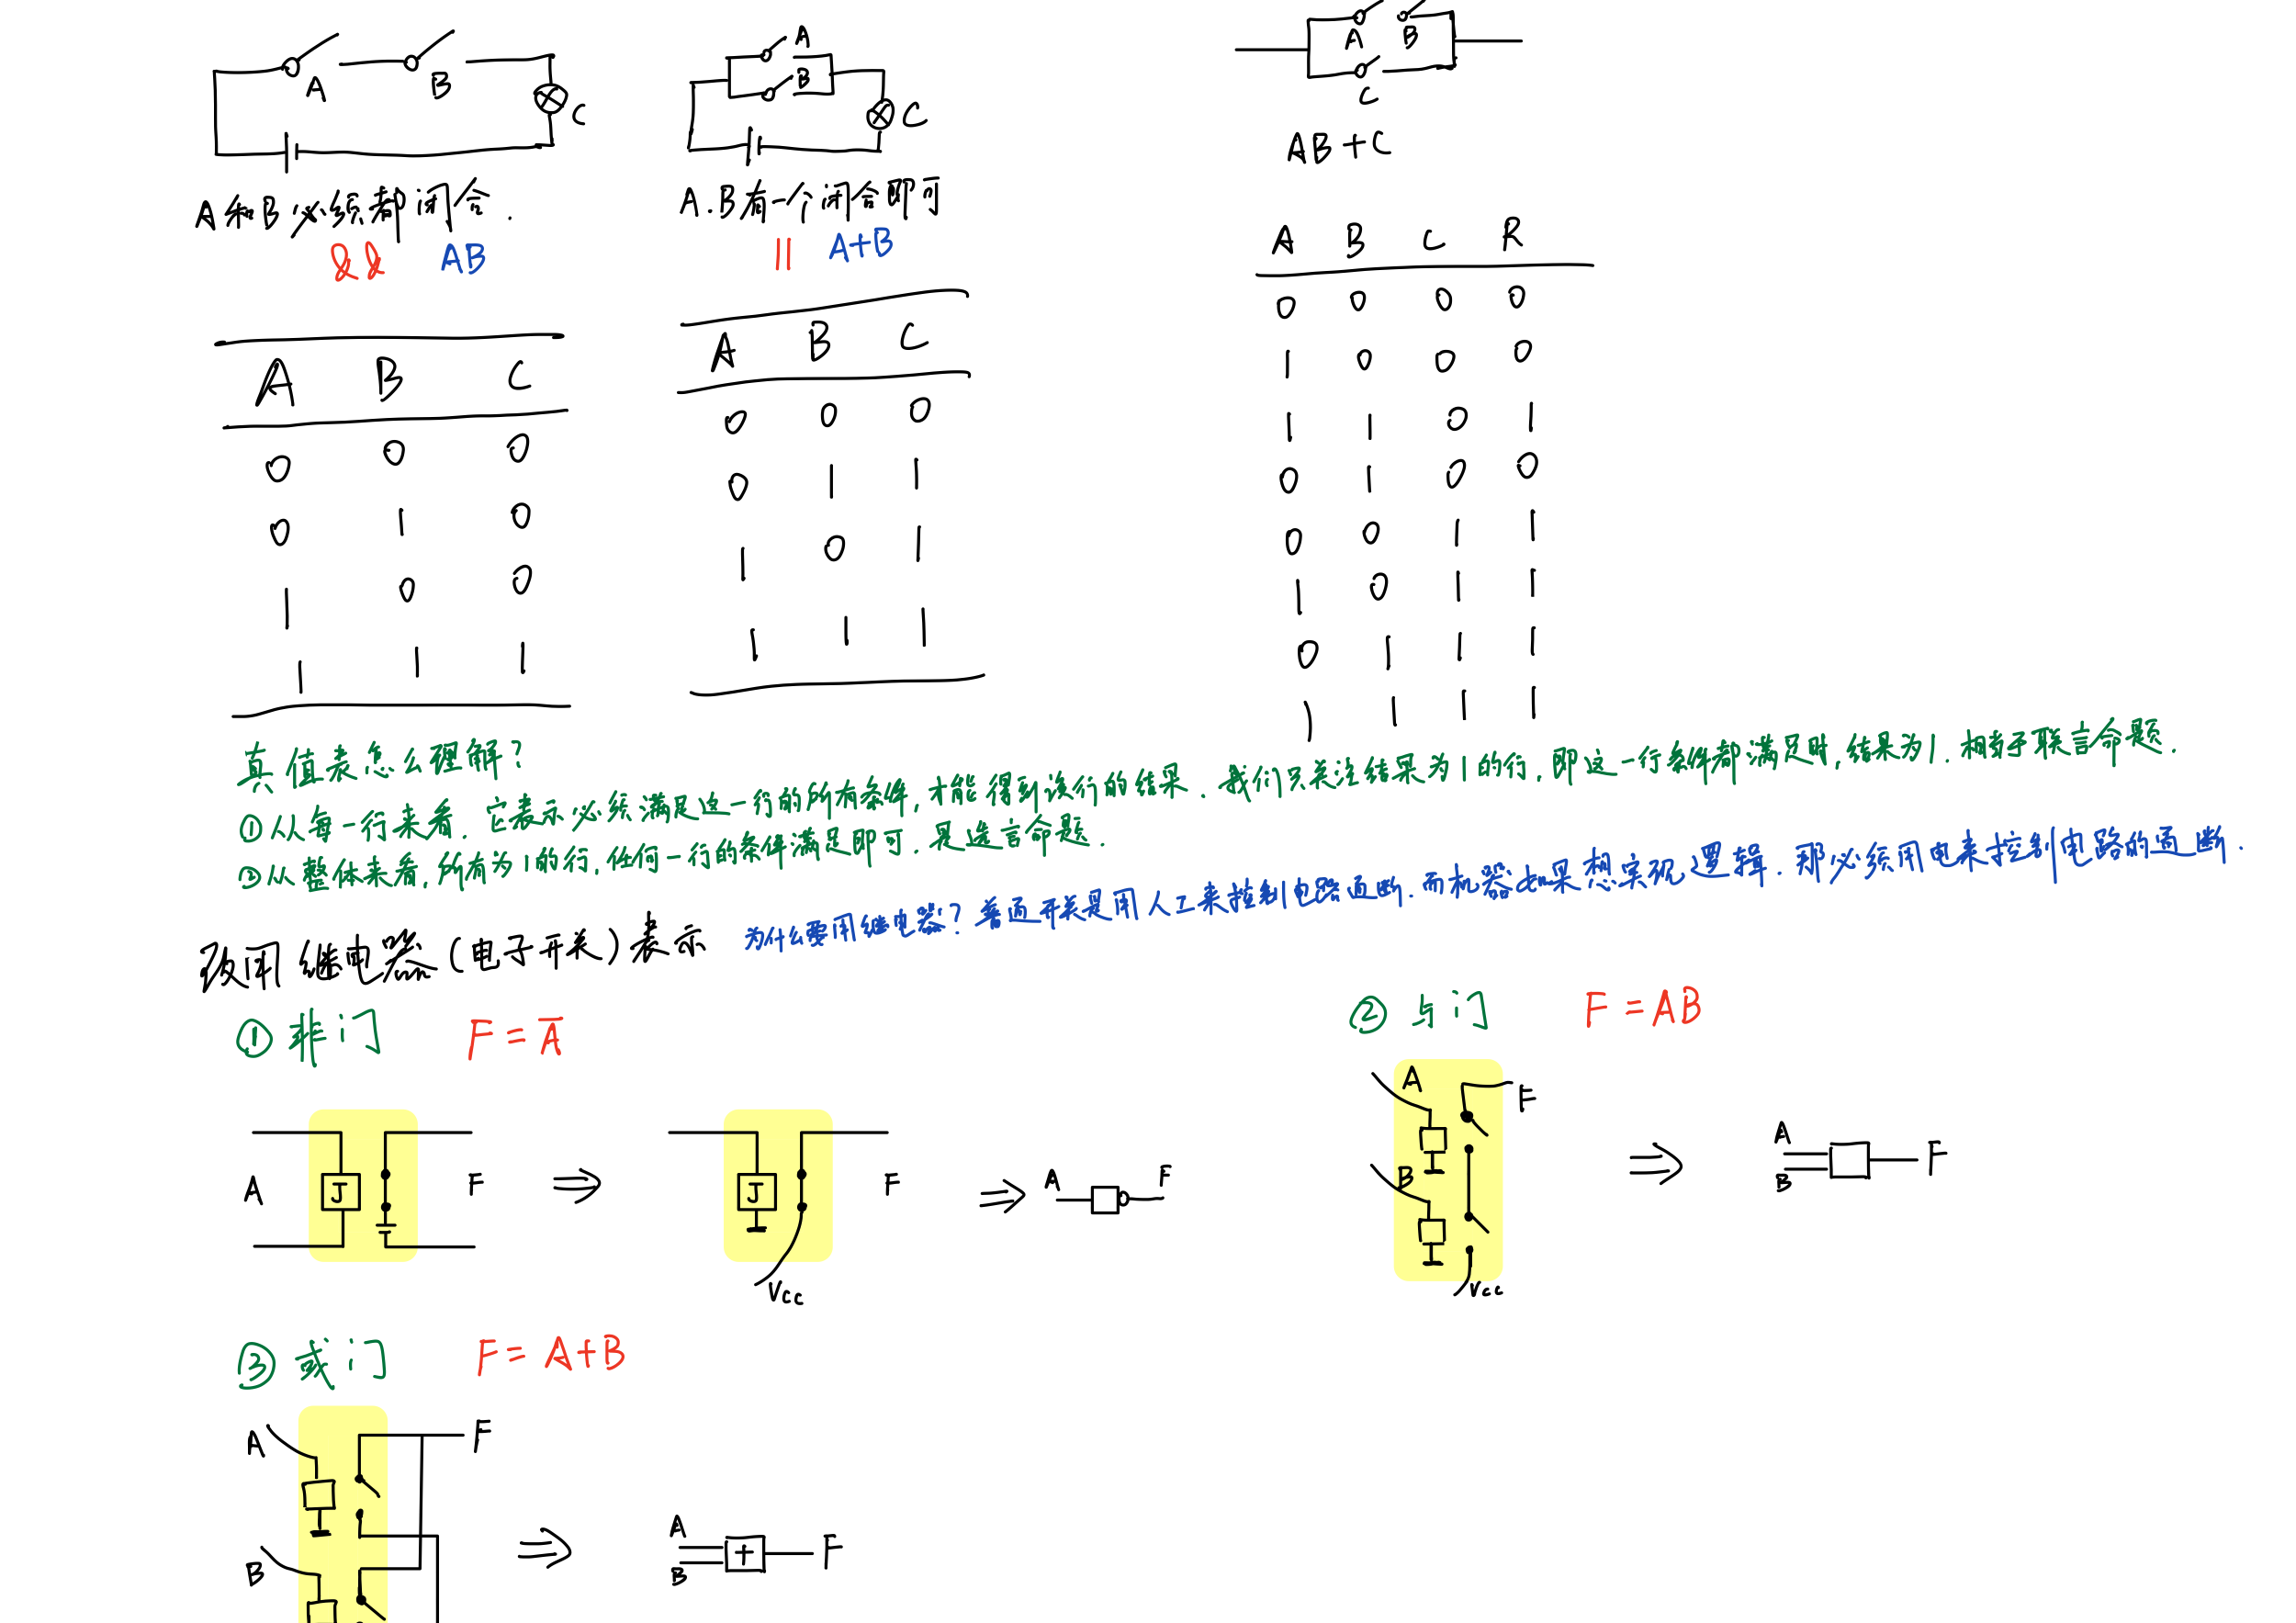 A
B
C
A和B必须都闭合.
&& AB
A B C
0 0 0
0 1 0
1 0 0
1 1 1
A
B
C
A.B有一个闭合即可
|| A+B
A B C
0 0 0
0 1 1
1 0 1
1 1 1
A B
C
AB+C
A B C R
0 0 0 0
1 0 0 0
1 1 0 1
0 1 0 0
0 0 1 1
1 0 1 1
0 1 1 1
1 1 1 1
真值表怎么理解?
①从每一行来看.它表示必须满足这一行的所有条件,才能得到该行的结果.我们只关注结果为1的行,即这一行条件都满足时,结果为1.相当于联言命题.
②从整体来看,所有为1的行,任何一行的条件满足即可.是选言命题.
改用继电器(电子开关)表示
为什么要用继电器?普通开关是用人工来控制电路通断.而机器如果想实现逻辑.那必须用电来控制电路的通断.
①非门 F=A̅
A J F
⇒
J F
Vcc
⇒
A F
②与门 F=AB
A F
B
Vcc
⇒
A
B F
③或门 F=A+B
A F
B
⇒
A
B + F